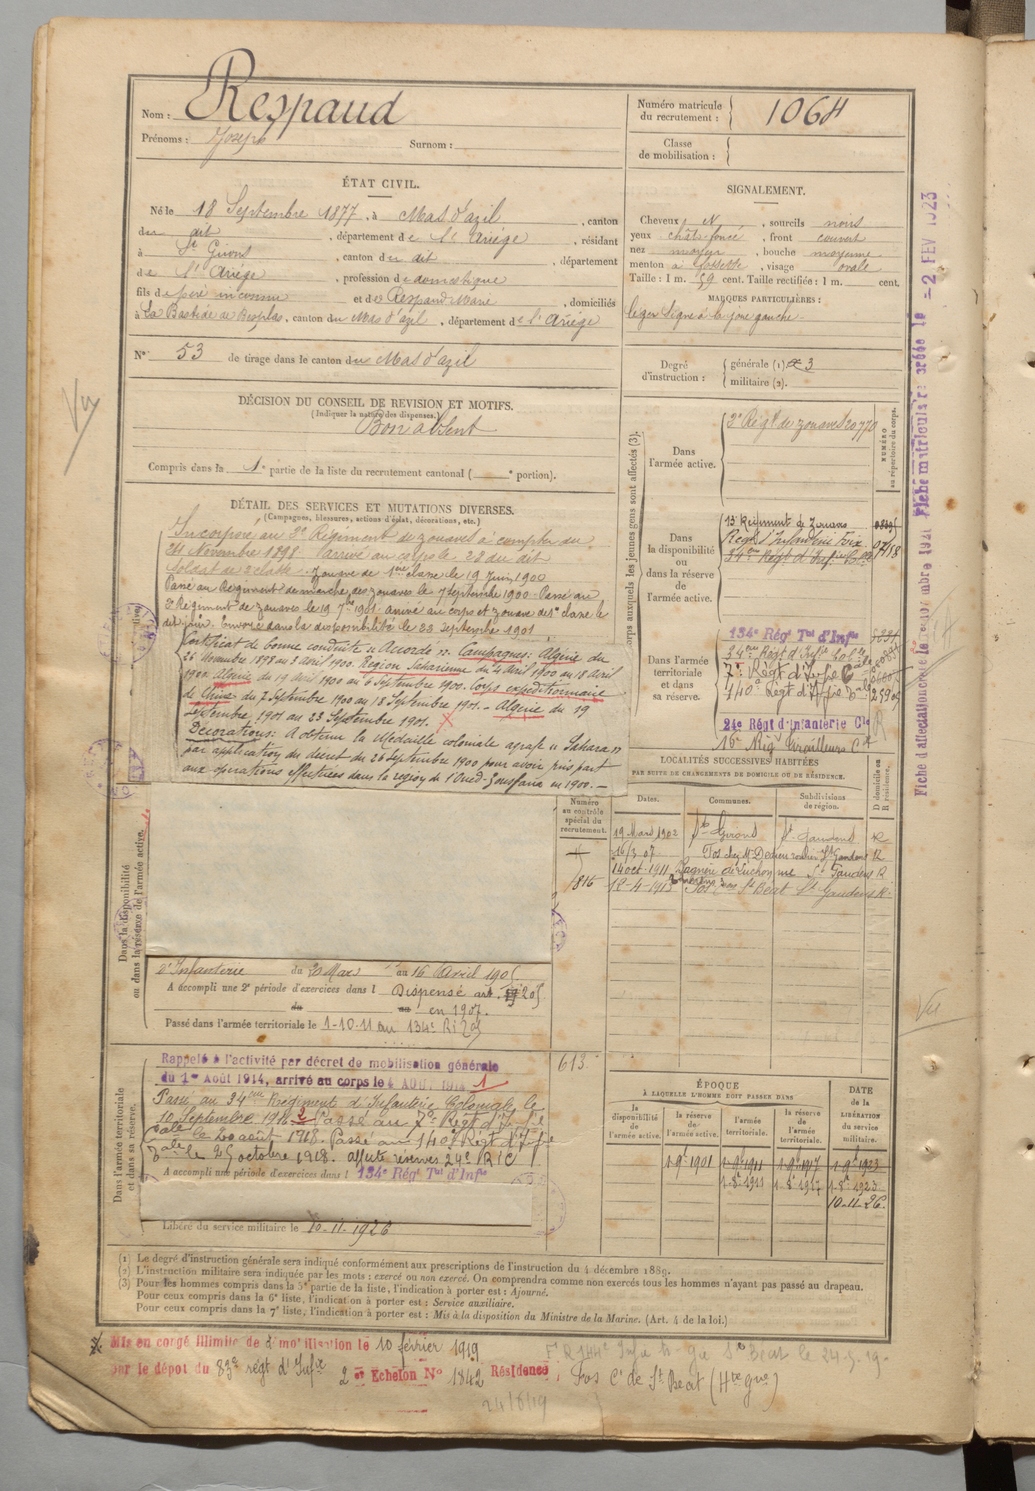 Nom : Respaud
Prénoms : Joseph Surnom :
Numéro matricule du recrutement : 1064
Classe de mobilisation :
ÉTAT CIVIL.
Né le 18 Septembre 1877, à Mas d'azil, canton
du dit, département de l'Ariège, résidant
à St Girons, canton du dit, département
de l'Ariège, profession de domestique
fils de père inconnu et de Respaud Marie, domiciliés
à La Bastide de Besplas, canton du Mas d'azil, département de l'Ariège
N° 53 de tirage dans le canton du Mas d'azil
SIGNALEMENT.
Cheveux N, sourcils noirs
yeux chât-foncé, front couvert
nez moyen, bouche moyenne
menton à fossette, visage ovale
Taille : 1 m. 59 cent. Taille rectifiée : 1 m. cent.
MARQUES PARTICULIÈRES :
léger signe à la joue gauche.
Degré d'instruction : générale (1) 3
militaire (2).
DÉCISION DU CONSEIL DE REVISION ET MOTIFS.
(Indiquer la nature des dispenses.)
Bon absent
Compris dans la 1e partie de la liste du recrutement cantonal ( e portion).
DÉTAIL DES SERVICES ET MUTATIONS DIVERSES.
(Campagnes, blessures, actions d'éclat, décorations, etc.)
Incorporé au 3e Régiment de zouaves à compter du
24 Novembre 1898. Arrivé au corps le 28 du dit
Soldat de 2e classe. Zouave de 1ère classe le 19 Juin 1900
Passé au Régiment de marche des zouaves le 7 Septembre 1900. Passé au
3e Régiment de zouaves le 19 7bre 1901. arrivé au corps et zouave de 1e classe le
dit jour. Envoyé dans la disponibilité le 23 Septembre 1901.
Certificat de bonne conduite "Accordé". Campagnes: Algérie du
26 Novembre 1898 au 3 avril 1900. Région Saharienne du 4 avril 1900 au 18 Avril
1900. Algérie du 19 Avril 1900 au 6 Septembre 1900. Corps expéditionnaire
de Chine du 7 Septembre 1900 au 18 Septembre 1901. - Algérie du 19
Septembre 1901 au 23 Septembre 1901.
Décorations: A obtenu la Médaille coloniale agrafe "Sahara"
par application du décret du 26 Septembre 1900 pour avoir pris part
aux opérations effectuées dans la région de l'Oued-Zousfana en 1900. -
Corps auxquels les jeunes gens sont affectés (3).
NUMÉRO au répertoire du corps.
Dans l'armée active.
3e Régt de zouaves 20770
Dans la disponibilité ou dans la réserve de l'armée active.
13 Régiment de Zouaves
Régt d'Infanterie Foix
34eme Régt d'Infie Colle
Dans l'armée territoriale et dans sa réserve.
134e Régt Tal d'Infie
34eme Régt d'Infie Colle
7e Régt d'Infie Cale
140e Régt d'Infie
24e Régt d'Infanterie Cle
16e Rég Tirailleurs Ct
Fiche matriculaire créée le - 2 FEV 1923
LOCALITÉS SUCCESSIVES HABITÉES
PAR SUITE DE CHANGEMENTS DE DOMICILE OU DE RÉSIDENCE.
Numéro au contrôle spécial du recrutement.
Dates. Communes. Subdivisions de région. D domicile ou R résidence.
19 Mars 1902 St Girons St Gaudens R
16/3 07 Fos chez Mr St Gaudens R
14 oct. 1911 Bagnères de Luchon St Gaudens R
1816 12-4-1913 Fos St Béat St Gaudens R
Dans la disponibilité ou dans la réserve de l'armée active.
d'Infanterie du 20 Mars au 16 Avril 1905
A accompli une 2e période d'exercices dans l Dispensé art.
du au en 1907.
Passé dans l'armée territoriale le 1-10-11 au 134e R
Dans l'armée territoriale et dans sa réserve.
Rappelé à l'activité par décret de mobilisation générale
du 1er Août 1914, arrivé au corps le 4 AOU. 1914 1
613
Passé au 34eme Régiment d'Infanterie Coloniale le
10 Septembre 1916. 2 Passé au 7e Régt d'Infie
Cale le 20 août 1918. Passé au 140e Régt d'Infie
le 25 octobre 1918. affecté réserves 24e R I C
A accompli une période d'exercices dans l 134e Régt Tal d'Infie
Libéré du service militaire le 10-11-1926
ÉPOQUE
À LAQUELLE L'HOMME DOIT PASSER DANS
DATE de la LIBÉRATION du service militaire.
la disponibilité de l'armée active. la réserve de l'armée active. l'armée territoriale. la réserve de l'armée territoriale.
1-9bre 1901 1-9bre 1911 1-9bre 1917 1-9bre 1923
1-8bre 1911 1-8bre 1917 1-8bre 1923
10-11-26.
(1) Le degré d'instruction générale sera indiqué conformément aux prescriptions de l'instruction du 4 décembre 1889.
(2) L'instruction militaire sera indiquée par les mots : exercé ou non exercé. On comprendra comme non exercés tous les hommes n'ayant pas passé au drapeau.
(3) Pour les hommes compris dans la 5e partie de la liste, l'indication à porter est : Ajourné.
Pour ceux compris dans la 6e liste, l'indication à porter est : Service auxiliaire.
Pour ceux compris dans la 7e liste, l'indication à porter est : Mis à la disposition du Ministre de la Marine. (Art. 4 de la loi.)
Mis en congé illimité de démobilisation le 10 février 1919
par le dépot du 83e régt d'Infie 2 e Echelon N° 1842 Résidence, Fos Cn de St Béat (Hte Gne)
24/6/19
Vu
Vu